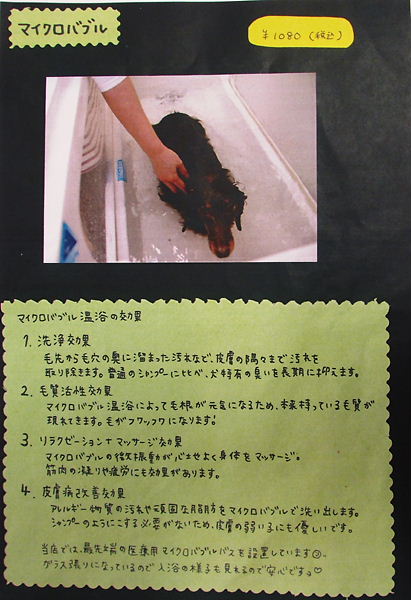 マイクロバブル
¥1080(税込)
マイクロバブル温浴の効果
1. 洗浄効果
毛先から毛穴の奥に溜まった汚れなど、皮膚の隅々まで汚れを
取り除きます。普通のシャンプーに比べ、犬特有の臭いを長期に抑えます。
2. 毛質活性効果
マイクロバブル温浴によって毛根が元気になるため、本来持っている毛質が
現れてきます。毛がフワッフワになります!
3. リラクゼーション+マッサージ効果
マイクロバブルの微振動が心地よく身体をマッサージ。
筋肉の凝りや疲労にも効果があります。
4. 皮膚病改善効果
アレルギー物質の汚れや頑固な脂肪をマイクロバブルで洗い出します。
シャンプーのようにこする必要がないため、皮膚の弱い子にも優しいです。
当店では、最先端の医療用マイクロバブルバスを設置しています
ガラス張りになっているので入浴の様子も見れるので安心ですっ♡